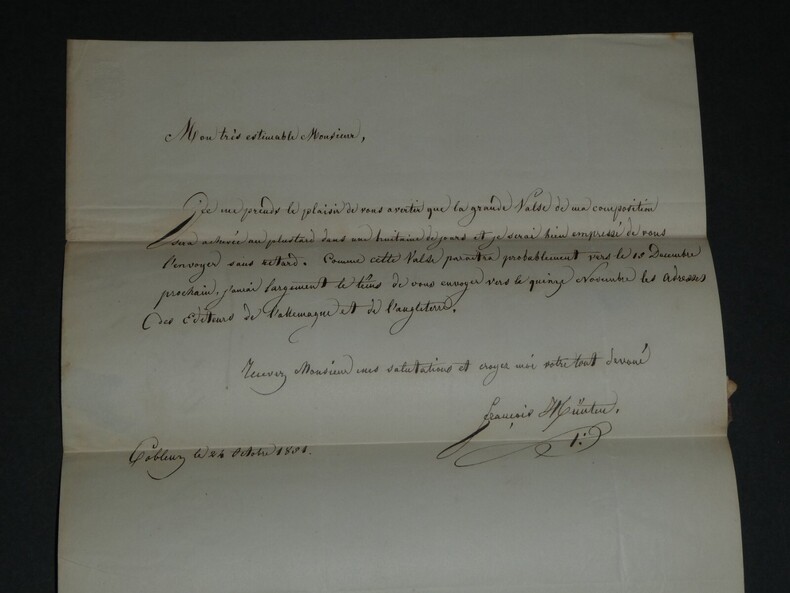 Mon très estimable Monsieur,
Je me prends le plaisir de vous avertir que la grande Valse de ma composition
sera achevée au plustard dans une huitaine de jours et je serai bien empressé de vous
l'envoyer sans retard. Comme cette Valse paroitre probablement vers le 10 Decembre
prochain, j'aurai largement le tems de vous envoyer vers le quinze Novembre les adresses
des Editeurs de l'allemagne et de l'angleterre.
Recevez Monsieur mes salutations et croyez moi votre tout devoué
françois Hünten.
Coblenz le 24 Octobre